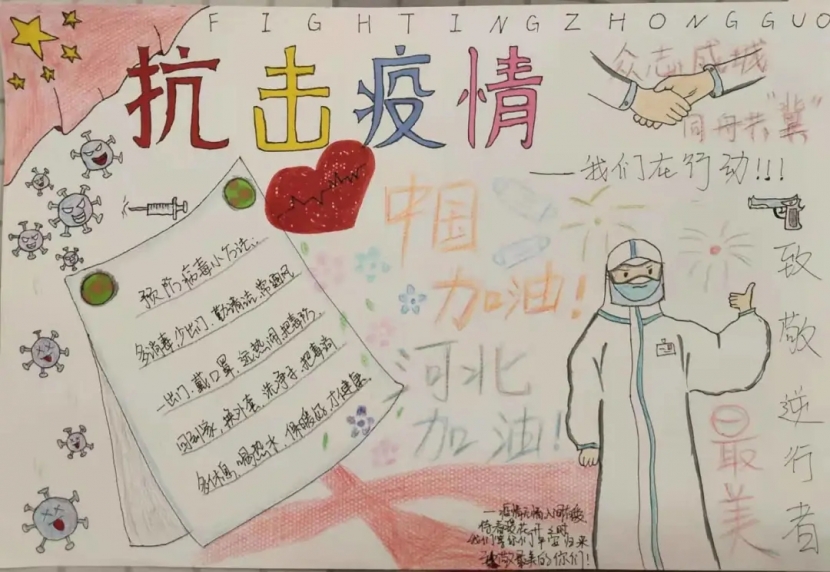 FIGHTINGZHONGGUO
抗击疫情
众志成城
同舟共"冀"
——我们在行动!!!
预防病毒小方法:
多消毒,少出门,勤清洁,常通风
一出门,戴口罩,远热闹,把毒防
回到家,换外套,洗净手,把毒
多休息,喝热水,保暖好,才健康
中国
加油!
河北
加油!
致敬逆行者
最美
一疫情无情人间有暖
待春暖花开之时
我们等你们平安归来
致敬最美的你们!